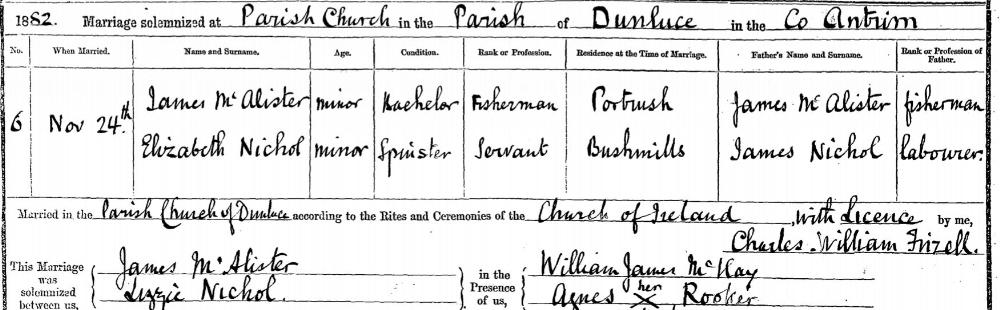 1882. Marriage solemnized at Parish Church in the Parish of Dunluce in the Co Antrim
No. When Married. Name and Surname. Age. Condition. Rank or Profession. Residence at the Time of Marriage. Father's Name and Surname. Rank or Profession of Father.
James McAlister minor Bachelor Fisherman Portrush James McAlister fisherman
6 Nov 24th
Elizabeth Nichol minor Spinster Servant Bushmills James Nichol labourer.
Married in the Parish Church of Dunluce according to the Rites and Ceremonies of the Church of Ireland, with Licence by me,
Charles William Frizell.
This Marriage was solemnized between us,
James McAlister
Lizzie Nichol.
in the Presence of us,
William James McKay
Agnes her X Rooker